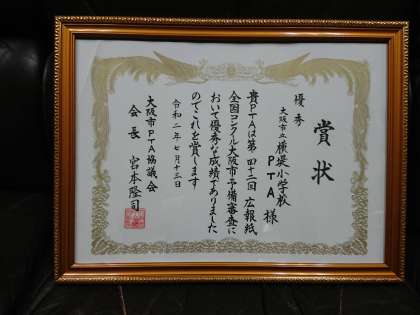 賞状
優秀
大阪市立横堤小学校
PTA様
貴PTAは第四十二回広報紙
全国コンクール大阪市予備審査に
おいて優秀な成績でありました
のでこれを賞します
令和二年七月十三日
大阪市PTA協議会
会長 宮本隆司